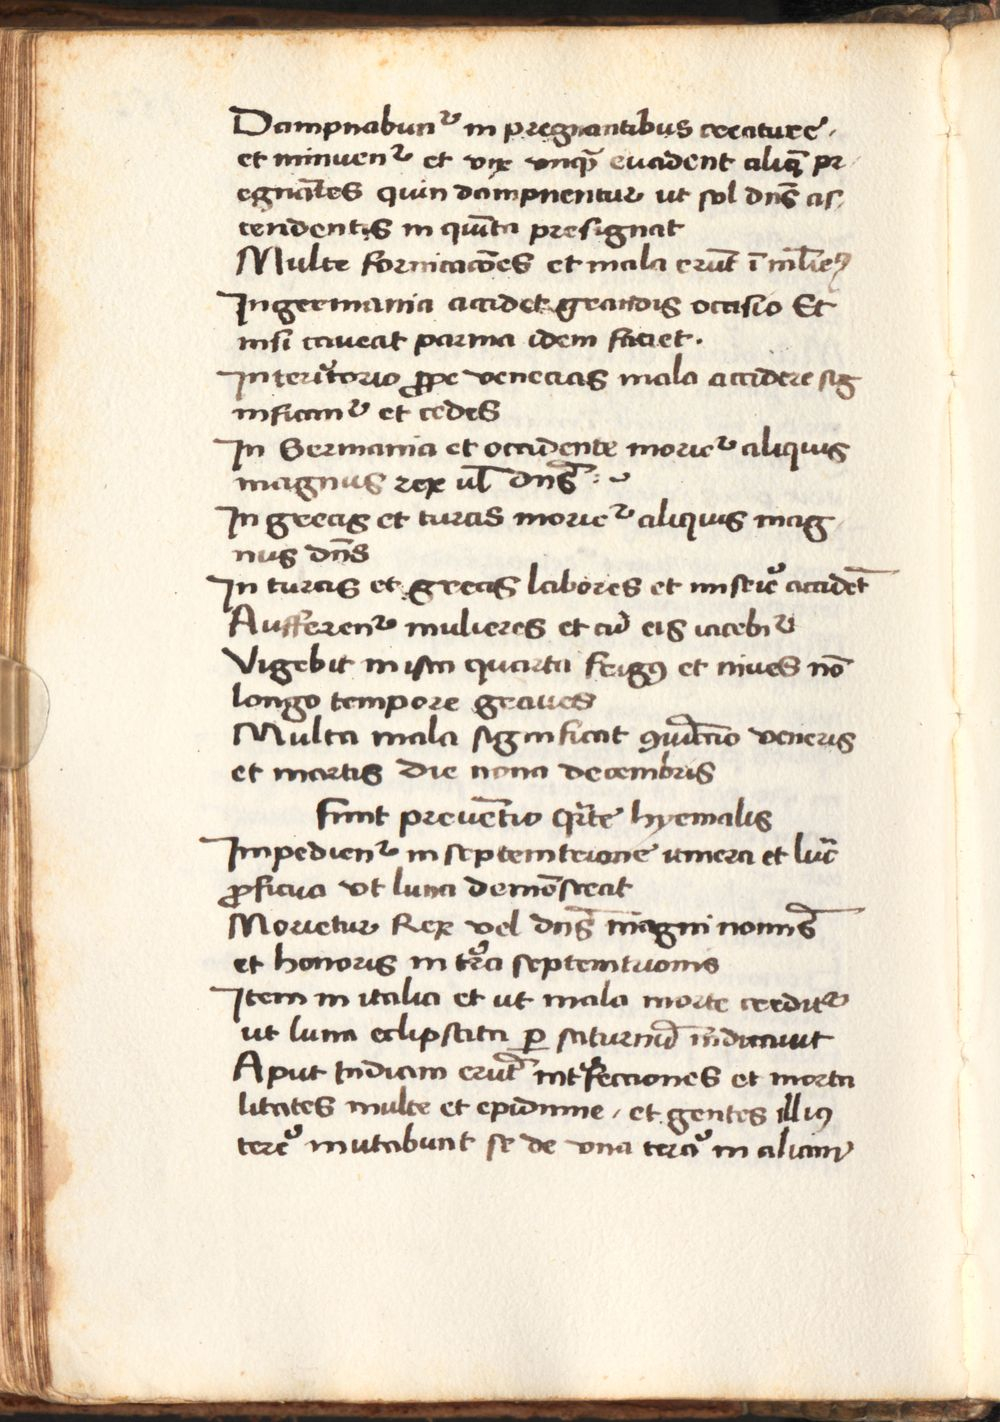 Dampnabunt᷑ in pregnantibus creature.
et minuent᷑ et vix vnq̄ȝ euadent aliq̄ pr
egnātes quin dampnentur ut sol dn̄s as,
cendentis in quīta presignat
Multe fornicacōēs et mala erūt ī ml̄ieꝯ
In germania accidet grandis occisio Et
nisi caueat parma idem faciet.
In teritorio ꝓpe venecias mala accidere sig
nificant᷑ et cedes
In Germania et occidente moriet᷑ aliquis
magnus rex ul̄ dn̄s
In grecis et turcis moriet᷑ aliquis mag
nus dn̄s
In turcis et grecis labores et miserie accidēt
Aufferent᷑ mulieres et cū eis iacebit᷑
Vigebit in ista quarta frigꝰ et niues nō
longo tempore graues
Multa mala significat ꝯiūctio veneris
et martis die nona decembris
fiunt preuētio qr̄te hyemalis
Impedient᷑ in septemtrione itinera et luc̄
ꝓficua vt luna demōstrat
Morietur Rex vel dn̄s magni nomīs
et honoris in tr̄a septemtrionis
Item in italia et ut mala morte credit᷑
ut luna eclipsata ꝑ saturnū indicauit
Aput Indiam erūt intrfecciones et morta
litates multe et epidimie, et gentes illiꝰ
terre mutabunt se de una terra in aliam